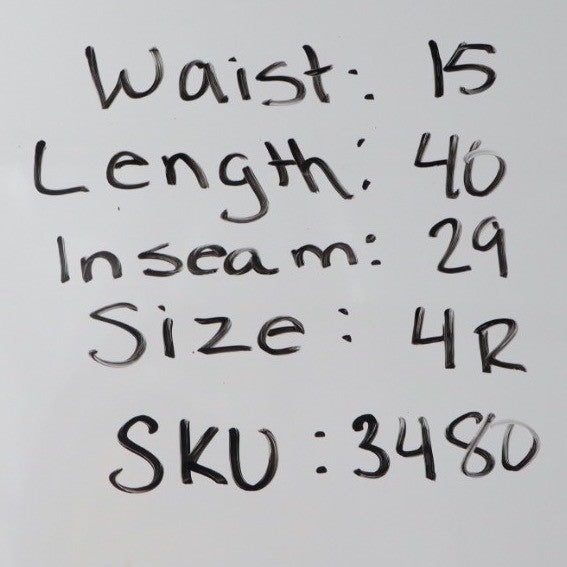 Waist: 15
Length: 40
Inseam: 29
Size: 4R
SKU: 3480